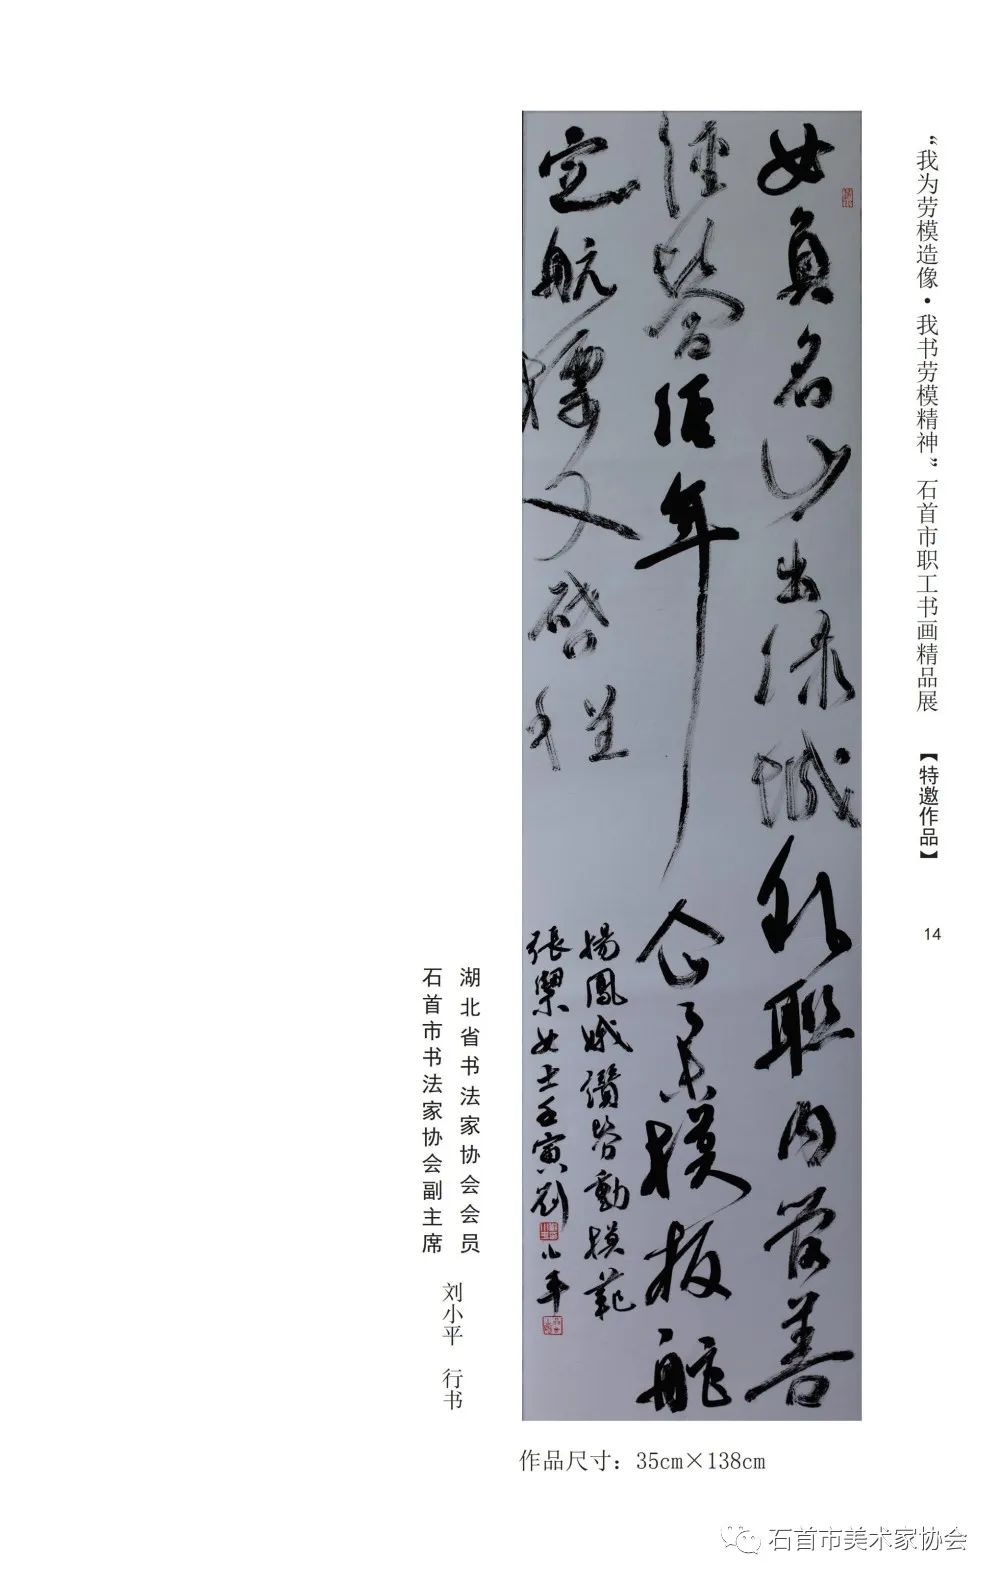 “我为劳模造像·我书劳模精神”石首市职工书画精品展 【特邀作品】 14
女負名山出绿城 外联内管善
经营 年 企業模板舵
定航標又启程
揚鳳娥讚劳動模範
張 女士壬寅劉小平
湖北省书法家协会会员
石首市书法家协会副主席
刘小平 行书
作品尺寸：35cm×138cm
石首市美术家协会